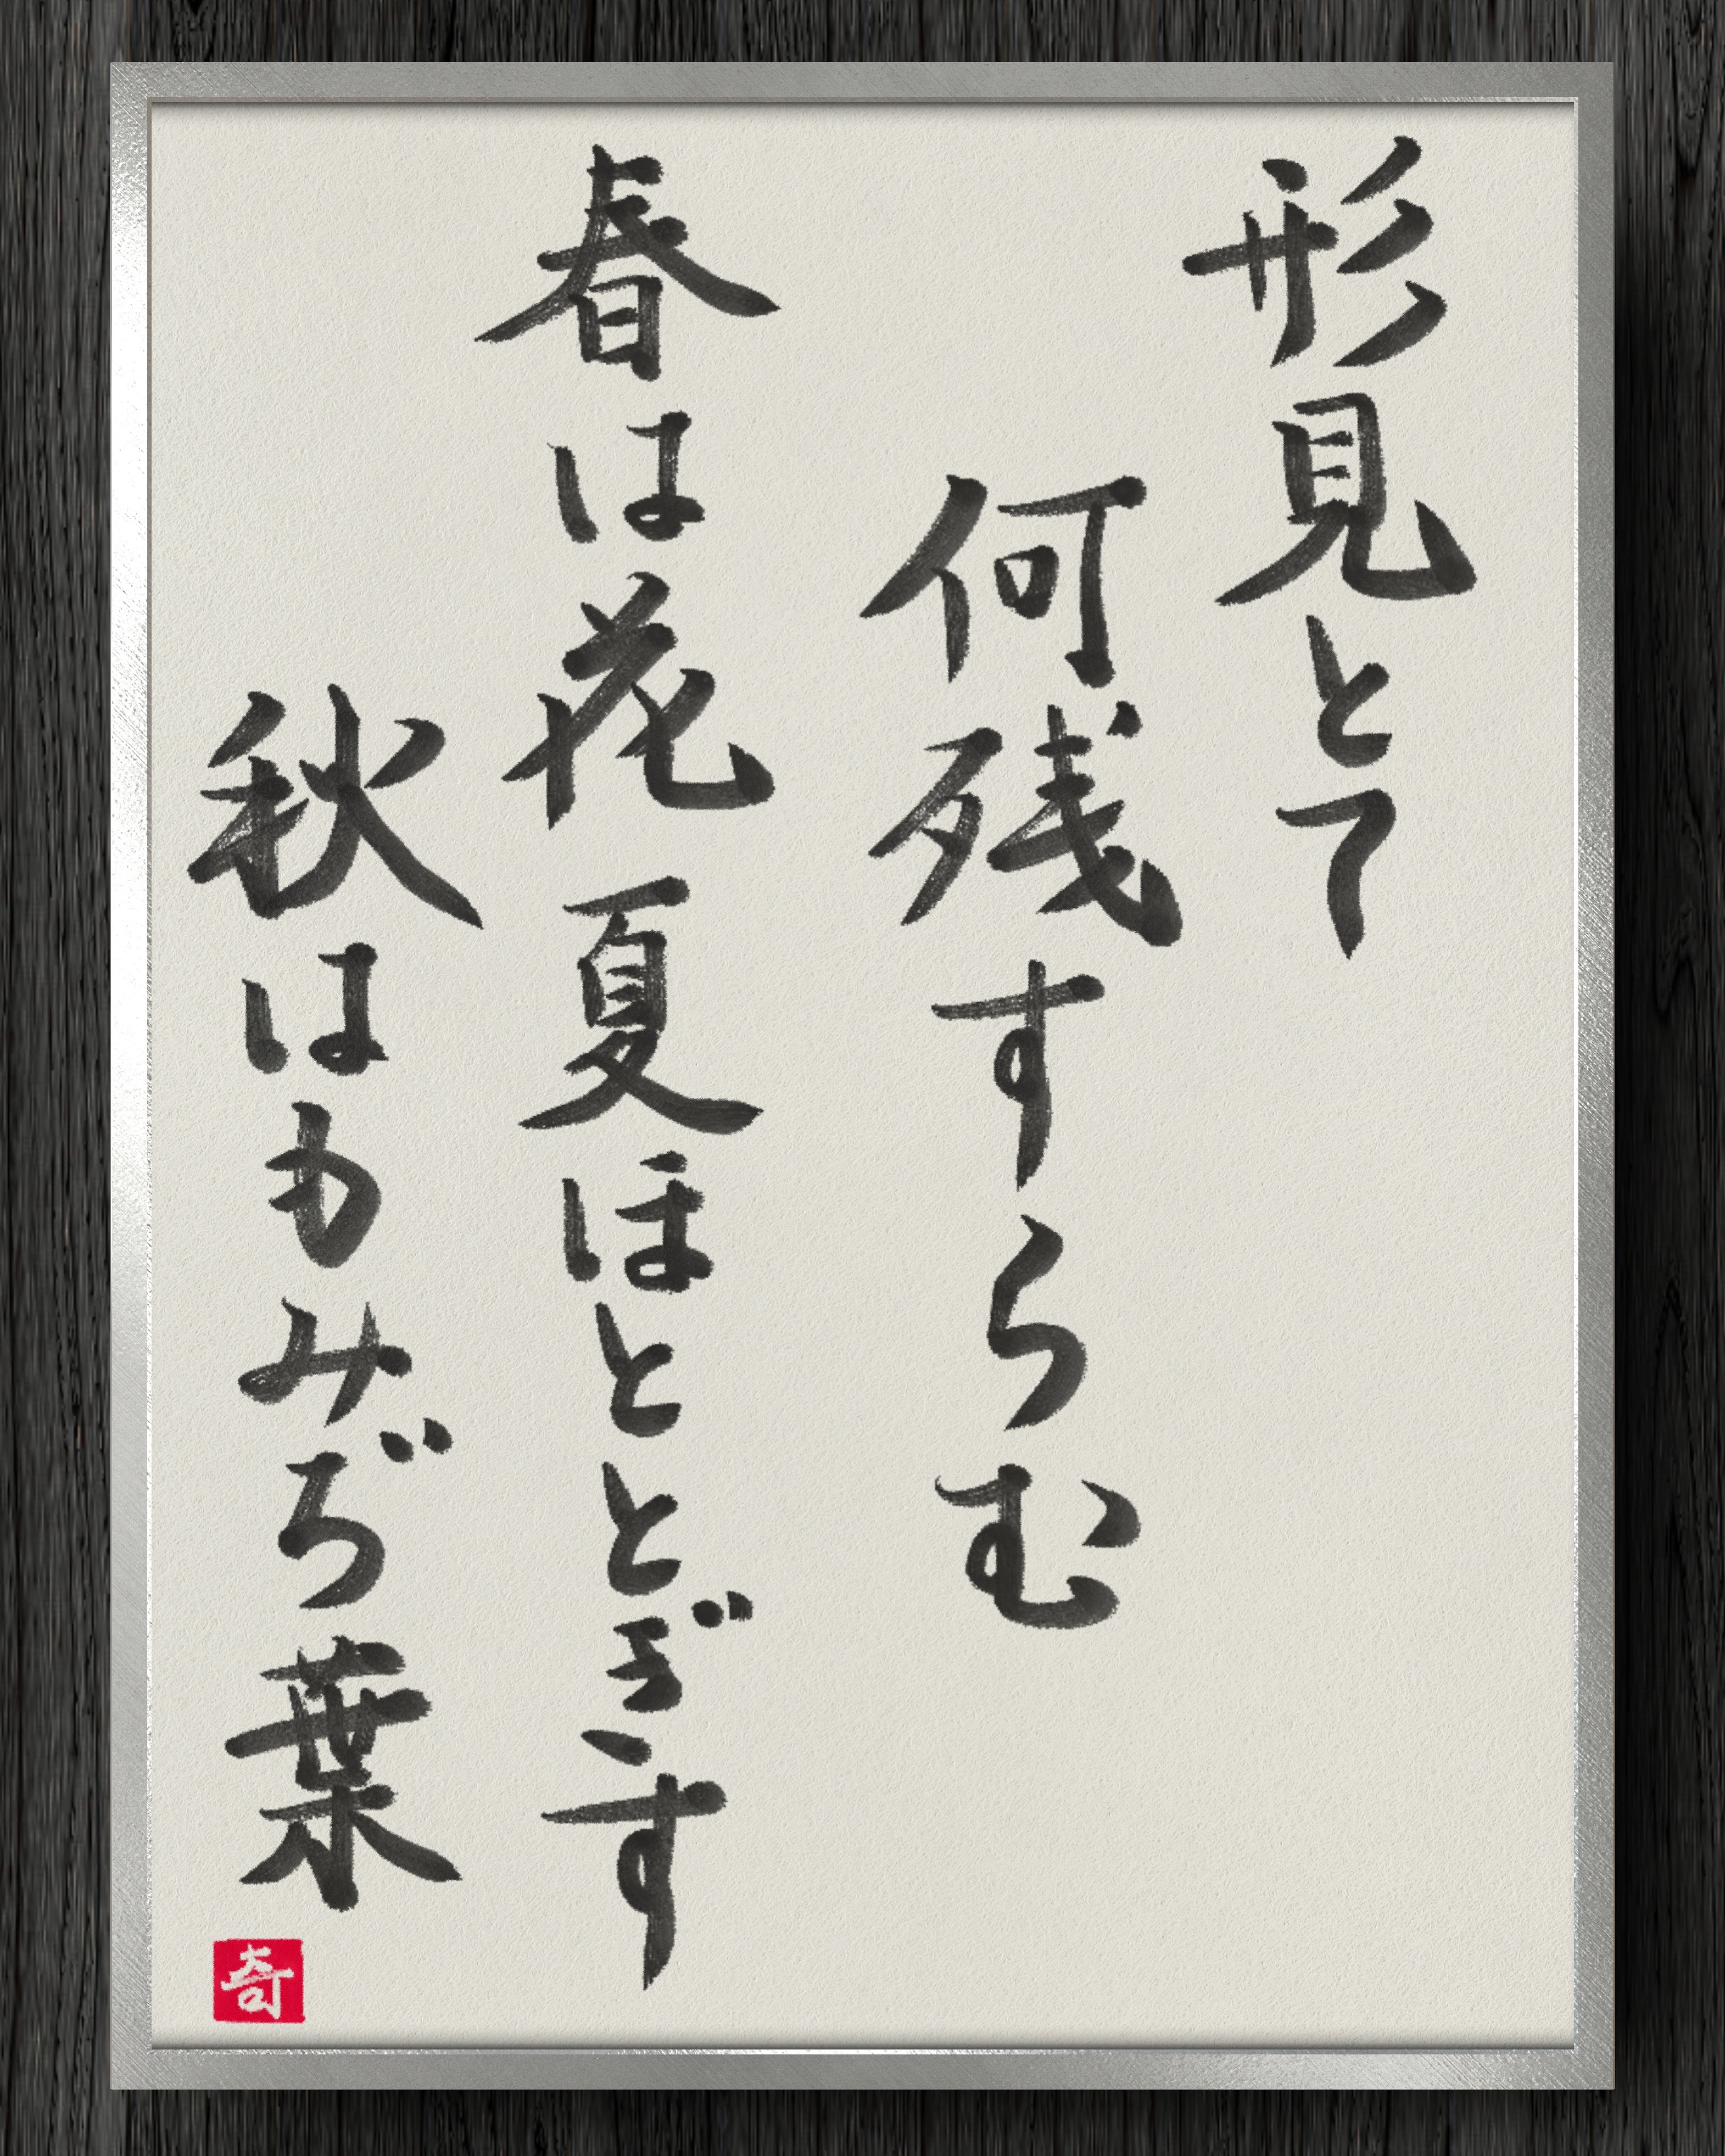 形見とて
何残すらむ
春は花夏ほととぎす
秋はもみぢ葉
奇